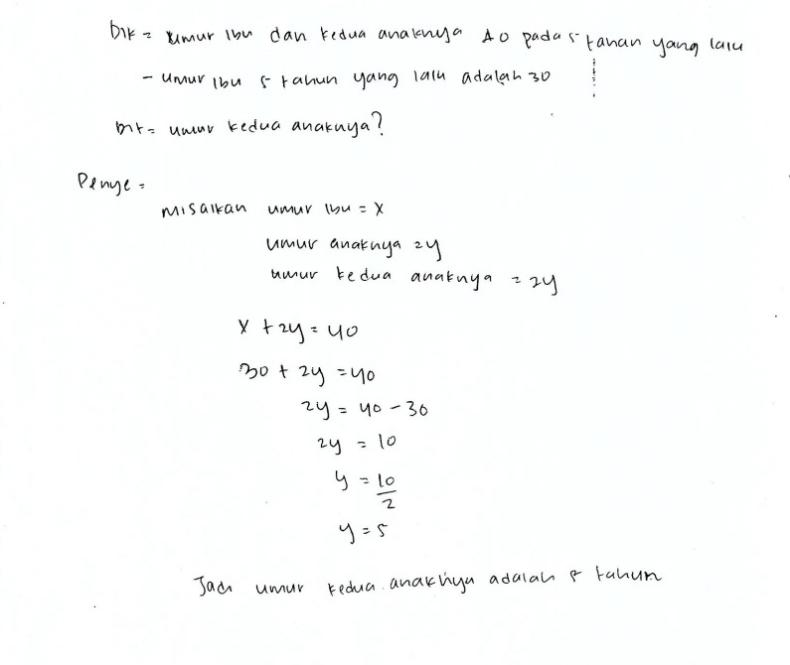 Dik = umur ibu dan kedua anaknya 40 pada 5 tahun yang lalu
- umur ibu 5 tahun yang lalu adalah 30
Dit = umur kedua anaknya?
Penye =
misalkan umur ibu = x
umur anaknya = y
umur kedua anaknya = 2y
x + 2y = 40
30 + 2y = 40
2y = 40 - 30
2y = 10
y = 10/2
y = 5
Jadi umur kedua anaknya adalah tahun